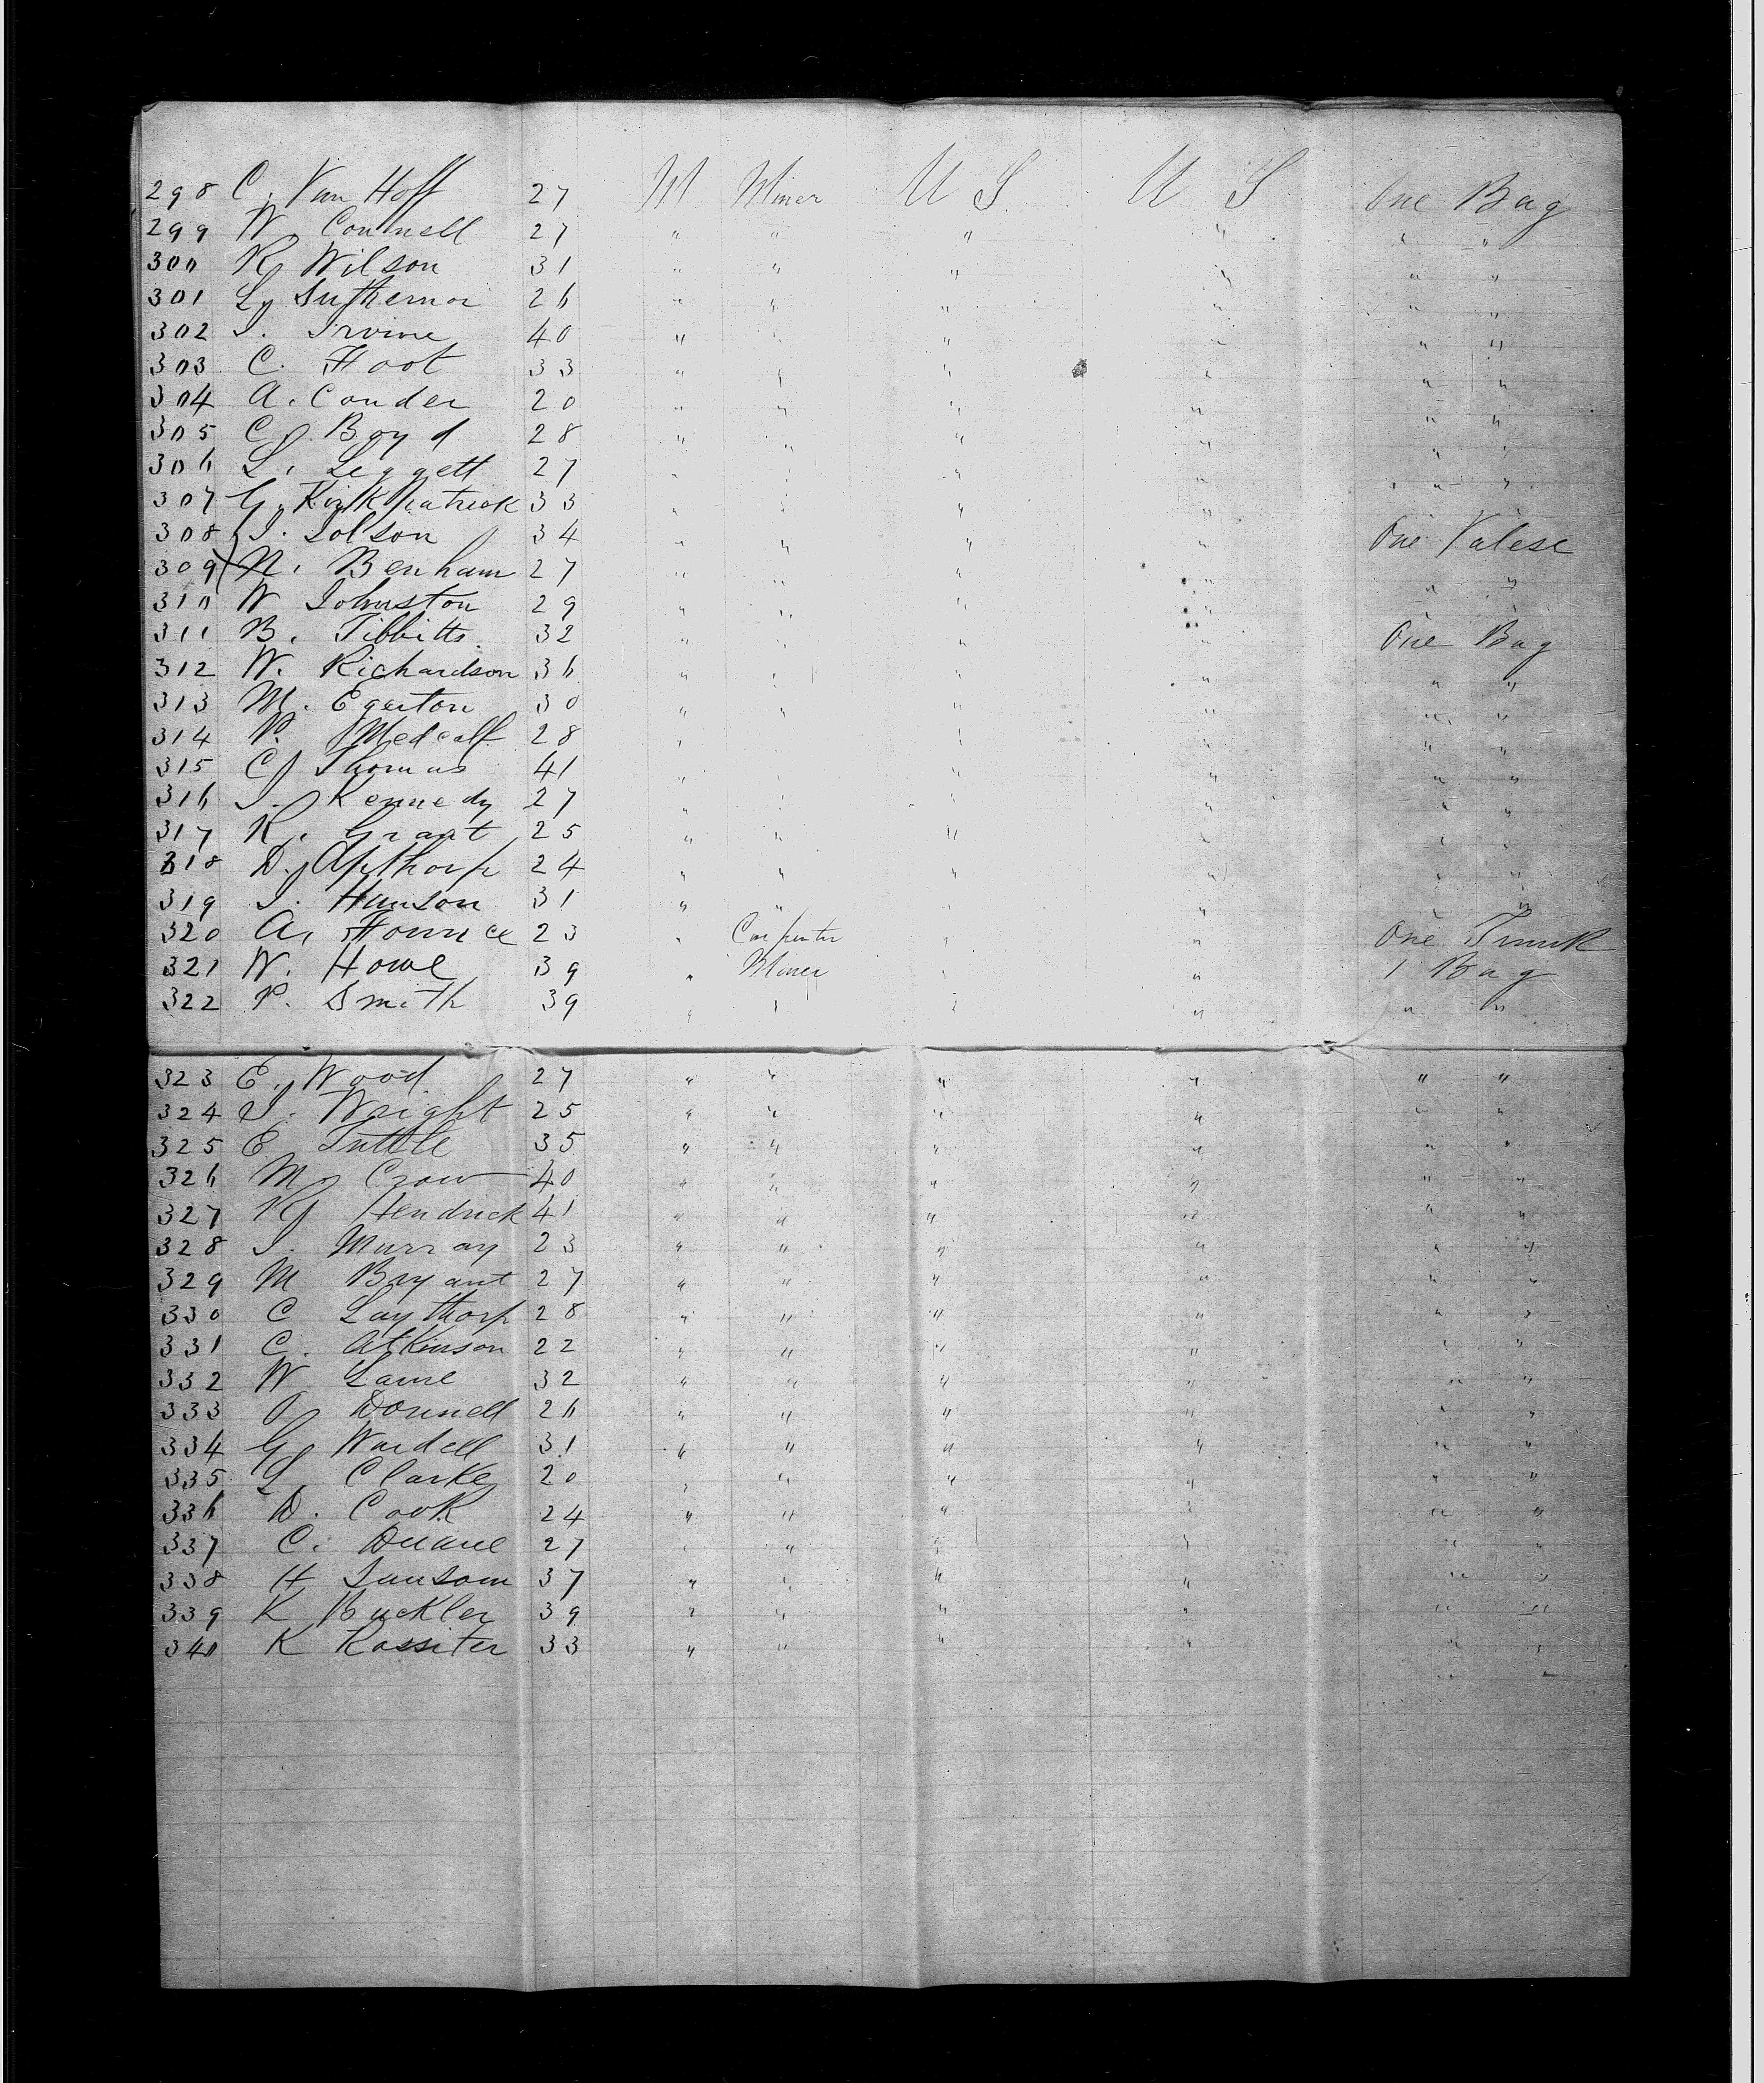 298 C. Van Hoff 27 M Miner U S U S One Bag
299 W. Connell 27 " " " " " "
300 R. Wilson 31 " " " " " "
301 L. Suthernor 26 " " " " " "
302 I. Irvine 40 " " " " " "
303 C. Hoot 33 " " " " " "
304 A. Conder 20 " " " " " "
305 C. Boyd 28 " " " " " "
306 L. Leggett 27 " " " " " "
307 G. Kirkpatrick 33 " " " " " "
308 I. Iolson 34 " " " " One Valese
309 N. Benham 27 " " " " " "
310 W Johnston 29 " " " " "
311 B. Tibbitts 32 " " " " One Bag
312 W. Richardson 36 " " " " " "
313 M. Egerton 30 " " " " " "
314 P. Medcalf 28 " " " " " "
315 C. Thomas 41 " " " " " "
316 I. Kennedy 27 " " " " " "
317 R. Grant 25 " " " " " "
318 D. Apthorp 24 " " " " " "
319 I. Hunson 31 " " " " "
320 A. 23 " Carpenter " " One Trunk
321 W. Howe 39 " Miner " " 1 Bag
322 P. Smith 39 " " " " " "
323 E. Wood 27 " " " " " "
324 I. Wright 25 " " " " " "
325 E Tuttle 35 " " " " " "
326 M. Crow 40 " " " " " "
327 R. Hendrick 41 " " " " " "
328 I. Murray 23 " " " " " "
329 M Bryant 27 " " " " " "
330 C Laythorp 28 " " " " " "
331 C. Atkinson 22 " " " " " "
332 W Lame 32 " " " " " "
333 O. Donnell 26 " " " " " "
334 G. Wardell 31 " " " " " "
335 L. Clarke 20 " " " " " "
336 D. Cook 24 " " " " " "
337 C. Duane 27 " " " " " "
338 H Sansom 37 " " " " " "
339 K Buckler 39 " " " " " "
340 K Rossiter 33 " " " " " "
" "